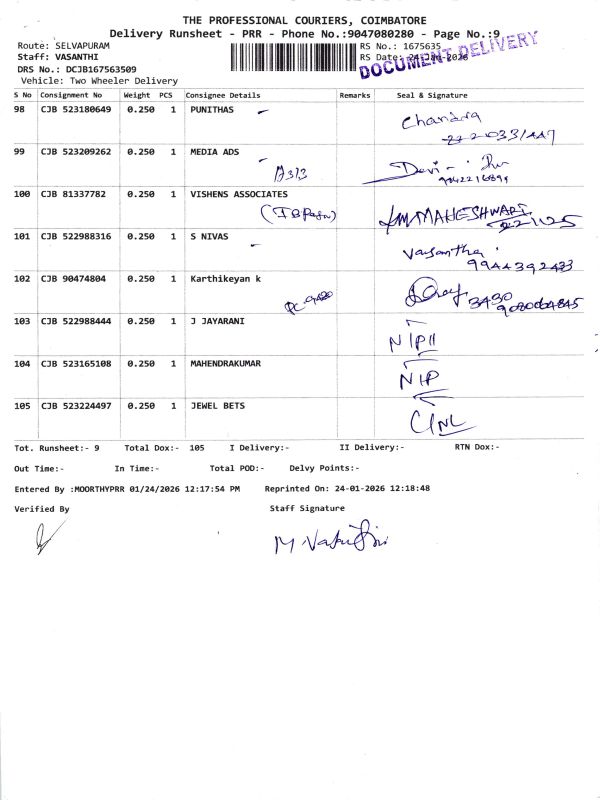 THE PROFESSIONAL COURIERS, COIMBATORE
Delivery Runsheet - PRR - Phone No.:9047080280 - Page No.:9
Route: SELVAPURAM RS No.: 1675635
Staff: VASANTHI RS Date: 24-Jan-2026
DOCUMENT DELIVERY
DRS No.: DCJB167563509
Vehicle: Two Wheeler Delivery
S No Consignment No Weight PCS Consignee Details Remarks Seal & Signature
98 CJB 523180649 0.250 1 PUNITHAS Chandra
99 CJB 523209262 0.250 1 MEDIA ADS Devi
A313
100 CJB 81337782 0.250 1 VISHENS ASSOCIATES
MAHESHWARI
101 CJB 522988316 0.250 1 S NIVAS Vasantha
9944392433
102 CJB 90474804 0.250 1 Karthikeyan k
3430
103 CJB 522988444 0.250 1 J JAYARANI
104 CJB 523165108 0.250 1 MAHENDRAKUMAR
NIP
105 CJB 523224497 0.250 1 JEWEL BETS
Tot. Runsheet:- 9 Total Dox:- 105 I Delivery:- II Delivery:- RTN Dox:-
Out Time:- In Time:- Total POD:- Delvy Points:-
Entered By :MOORTHYPRR 01/24/2026 12:17:54 PM Reprinted On: 24-01-2026 12:18:48
Verified By Staff Signature